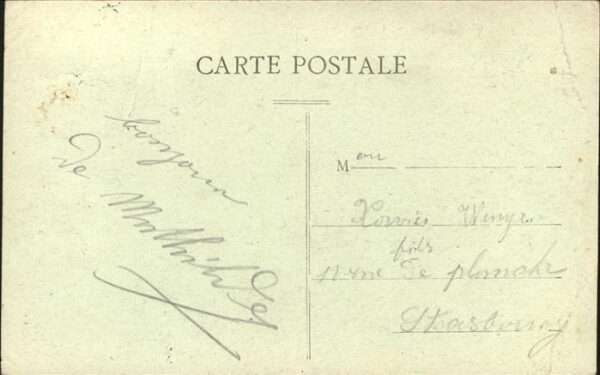 CARTE POSTALE
bonjour
de Mathilde
M on
fils
11 rue de planche
Strasbourg